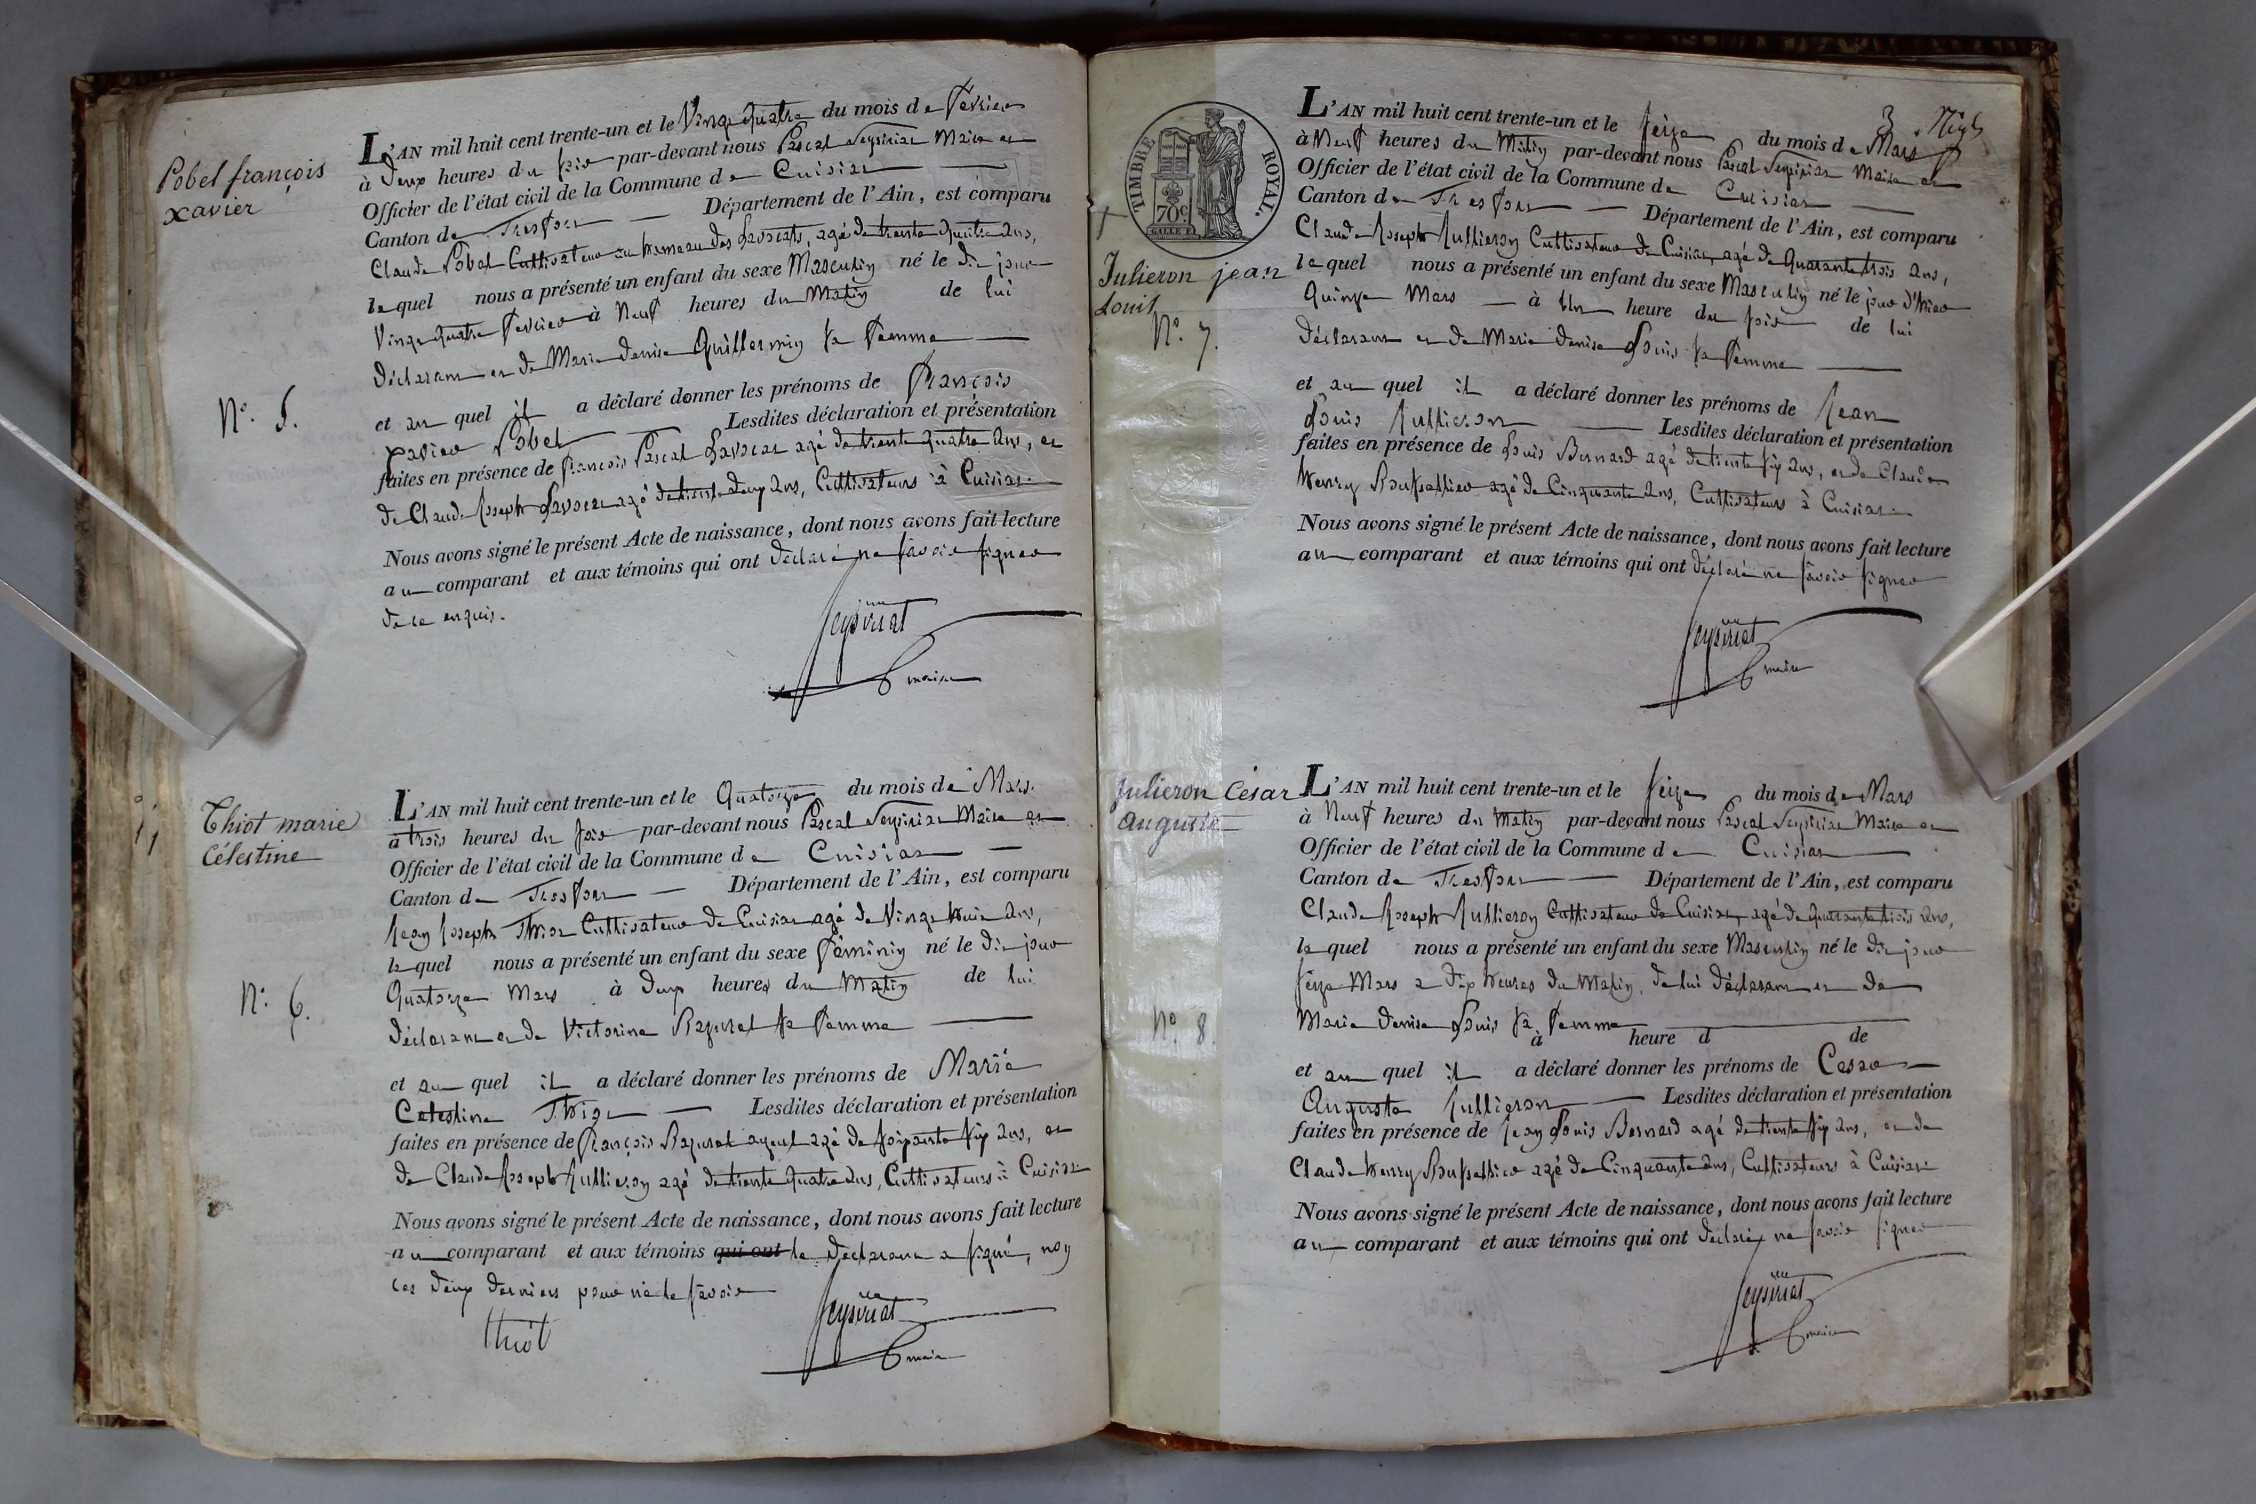 Pobel françois
xavier
N.° 5.
L'AN mil huit cent trente-un et le Vingt quatre du mois de Février
à Deux heures du soir par-devant nous Pascal Seysiriat Maire et
Officier de l'état civil de la Commune de Cuisiat
Canton de Treffort Département de l'Ain, est comparu
Claude Pobel Cultivateur au hameau des Lavocats, agé de trente quatre ans,
lequel nous a présenté un enfant du sexe Masculin né le dit jour
Vingt quatre Février à Neuf heures du Matin de lui
déclarant et de Marie denise Guillermin sa femme
et au quel il a déclaré donner les prénoms de François
xavier Pobel Lesdites déclaration et présentation
faites en présence de François Pascal Lavocat agé de trente quatre ans, et
de Claude Joseph Lavocat agé de trente deux ans, Cultivateurs à Cuisiat
Nous avons signé le présent Acte de naissance, dont nous avons fait lecture
au comparant et aux témoins qui ont déclaré ne savoir signer
de ce enquis.
Seysiriat
maire
Thiot marie
Célestine
N.° 6.
L'AN mil huit cent trente-un et le Quatorze du mois de Mars.
à trois heures du soir par-devant nous Pascal Seysiriat Maire et
Officier de l'état civil de la Commune de Cuisiat
Canton de Treffort Département de l'Ain, est comparu
Jean Joseph Thiot Cultivateur de Cuisiat agé de Vingt huit ans,
lequel nous a présenté un enfant du sexe féminin né le dit jour
Quatorze Mars à Deux heures du Matin de lui
déclarant et de Victorine Razurel sa femme
et au quel il a déclaré donner les prénoms de Marie
Celestine Thiot Lesdites déclaration et présentation
faites en présence de François Razurel ayeul agé de soixante six ans, et
de Claude Joseph Jullieron agé de trente quatre ans, Cultivateurs à Cuisiat
Nous avons signé le présent Acte de naissance, dont nous avons fait lecture
au comparant et aux témoins qui ont le déclarant a signé, non
les deux derniers pour ne le savoir
thiot
Seysiriat
maire
TIMBRE ROYAL.
70c
Julieron jean
Louis
N.° 7.
3.
L'AN mil huit cent trente-un et le seize du mois de Mars
à Neuf heures du Matin par-devant nous Pascal Seysiriat Maire et
Officier de l'état civil de la Commune de Cuisiat
Canton de Treffort Département de l'Ain, est comparu
Claude Joseph Jullieron Cultivateur de Cuisiat agé de quarante trois ans,
lequel nous a présenté un enfant du sexe Masculin né le jour d'hier
Quinze Mars à Une heure du soir de lui
déclarant et de Marie denise Louis sa femme
et au quel il a déclaré donner les prénoms de Jean
Louis Jullieron Lesdites déclaration et présentation
faites en présence de Louis Bernard agé de trente six ans, et de Claude
henry Roussallier agé de Cinquante ans, Cultivateurs à Cuisiat
Nous avons signé le présent Acte de naissance, dont nous avons fait lecture
au comparant et aux témoins qui ont déclaré ne savoir signer
Seysiriat
maire
Julieron César
auguste
N.° 8.
L'AN mil huit cent trente-un et le seize du mois de Mars
à Neuf heures du Matin par-devant nous Pascal Seysiriat Maire et
Officier de l'état civil de la Commune de Cuisiat
Canton de Treffort Département de l'Ain, est comparu
Claude Joseph Jullieron Cultivateur de Cuisiat agé de quarante trois ans,
lequel nous a présenté un enfant du sexe Masculin né le dit jour
seize Mars a dix heures du Matin, de lui déclarant et de
Marie denise Louis sa femme
à heure d de
et au quel il a déclaré donner les prénoms de Cesar
Auguste Jullieron Lesdites déclaration et présentation
faites en présence de Jean Louis Bernard agé de trente six ans, et de
Claude henry Roussallier agé de Cinquante ans, Cultivateurs à Cuisiat
Nous avons signé le présent Acte de naissance, dont nous avons fait lecture
au comparant et aux témoins qui ont déclaré ne savoir signer
Seysiriat
maire